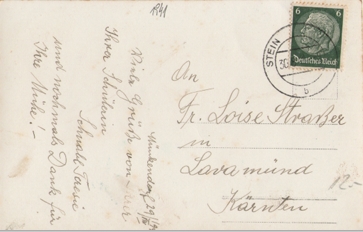 1941
6
6
Deutsches Reich
STEIN
b
An
Fr. Loise Straßer
in
Lavamünd
Kärnten
12.-
Viele Grüße von
Ihrer Schülerin
und nochmals Dank für
Ihre Mühe!